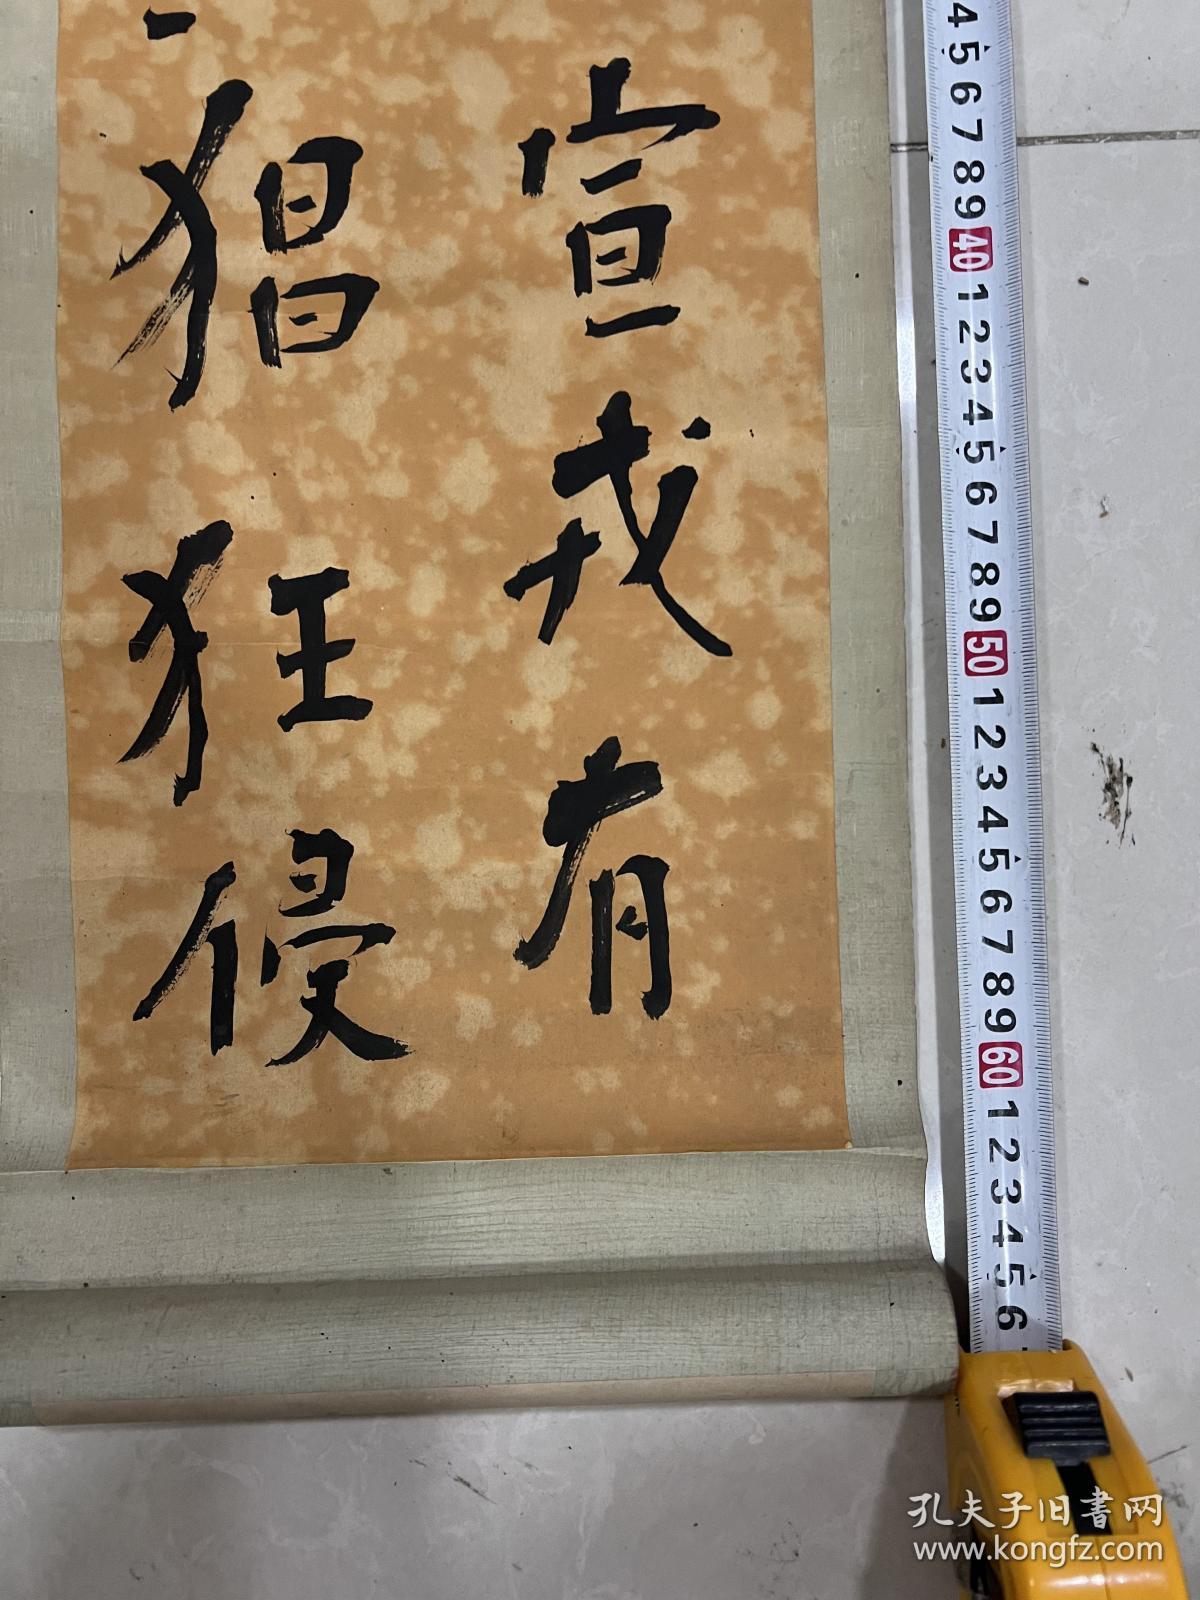 宣戎有
猖狂侵
4 5 6 7 8 9 40 1 2 3 4 5 6 7 8 9 50 1 2 3 4 5 6 7 8 9 60 1 2 3 4 5 6
孔夫子旧書网
www.kongfz.com